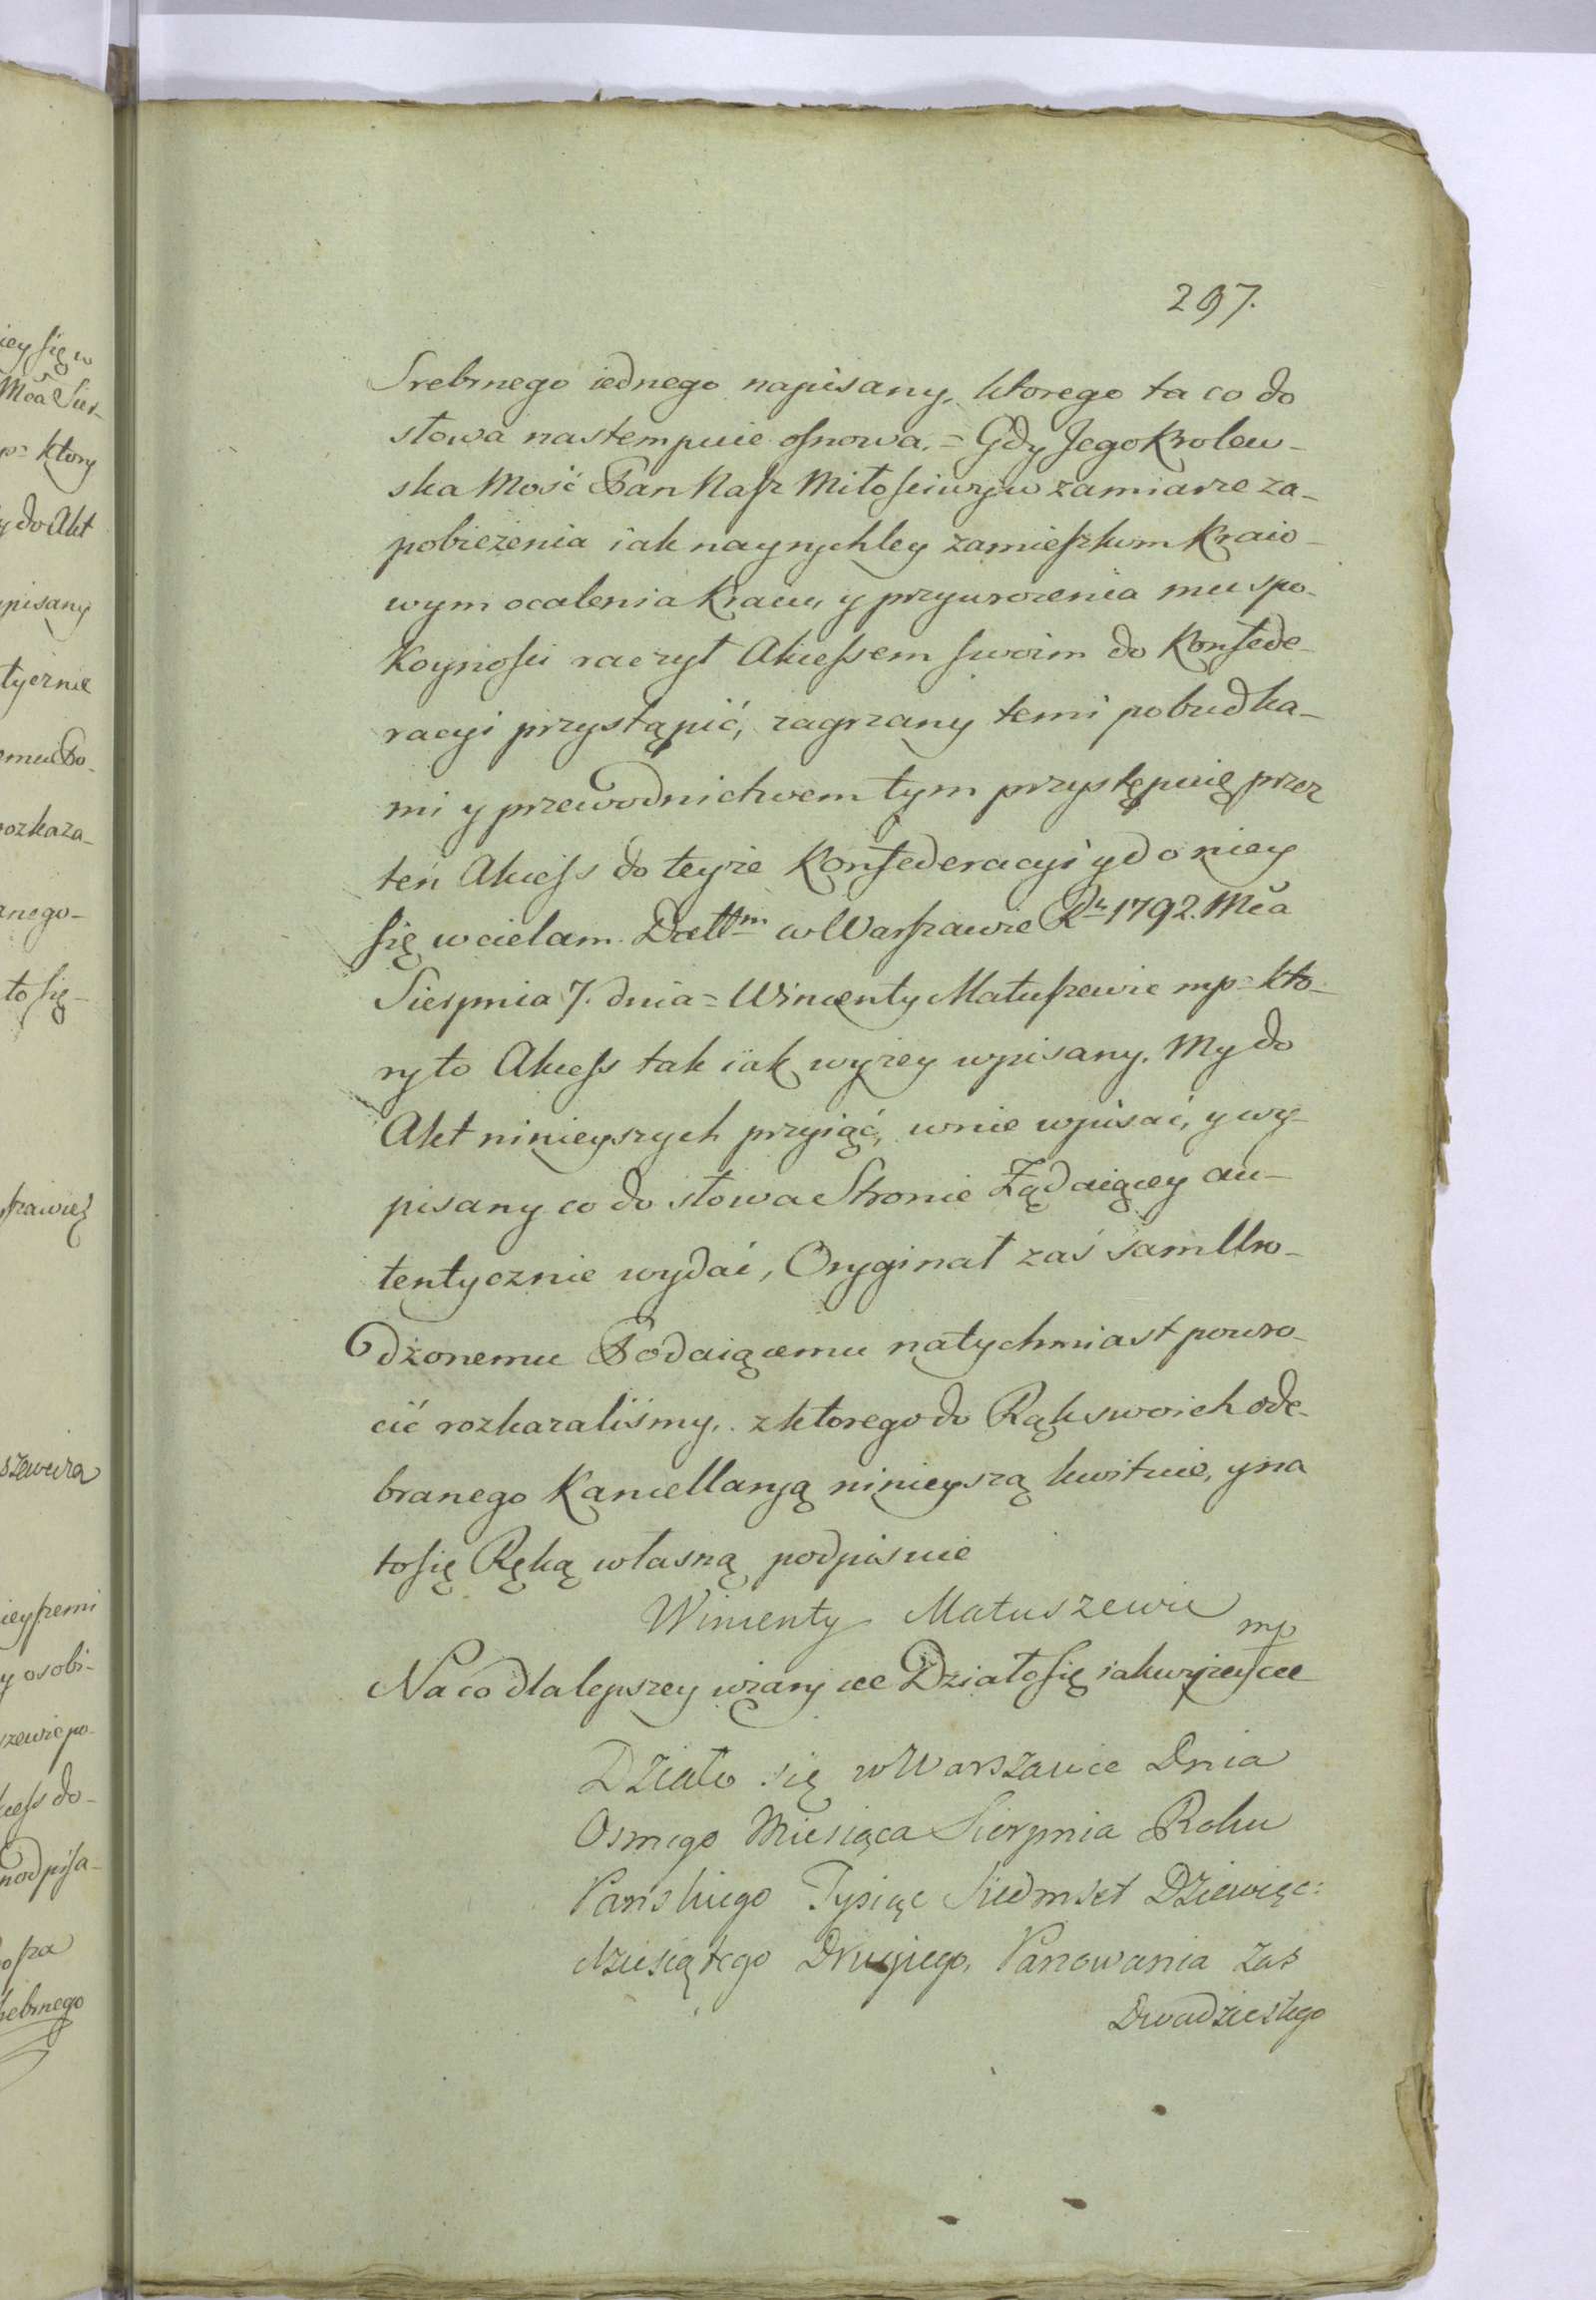 297.
Srebrnego iednego napisany, ktorego ta co do
słowa nastempuie osnowa. = Gdy Jego Krolew-
ska Mość Pan Nasz Miłościwy w zamiarze za-
pobieżenia iak nayrychley zamieszkom Kraio-
wym ocalenia Kraiu, y przywrocenia mu spo-
Koyności raczył Akcessem swoim do Konfede-
racyi przystąpić, zagrzany temi pobudka-
mi y przewodnictwem tym przystępuię przez
ten Akcess do teyże Konfederacyi y do niey
się wcielam. Datt͞m w Warszawie Rͧ 1792. Mca
Sierpnia 7. dnia = Wincenty Matuszewic mp = kto-
ry to Akcess tak iak wyżey wpisany. My do
Akt ninieyszych przyiąć, w nie wpisać, y wy-
pisany co do słowa Stronie Żądaiącey au-
tentycznie wydać, Oryginał zaś sam Uro-
dzonemu Podaiącemu natychmiast powro-
cić rozkazaliśmy, z ktorego do Rąk swoich ode-
branego Kancellaryą ninieyszą kwituie, y na
to się Ręką własną podpisuie
Wincenty Matuszewic mp
Na co dla lepszey wiary ett Działo się iak wyżey ett
Działo się w Warszawie Dnia
Osmego Miesiąca Sierpnia Roku
Panskiego Tysiąc Siedmset Dziewięć:
dziesiątego Drugiego, Panowania Zas
Dwudziestego